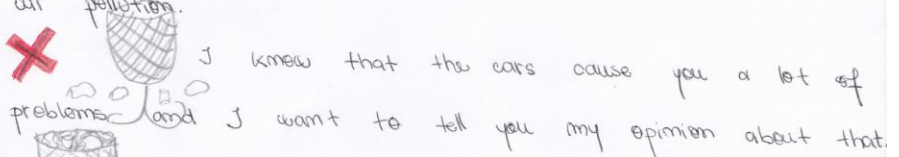 air pollution.
I knew that the cars cause you a lot of
problems and I want to tell you my opinion about that.